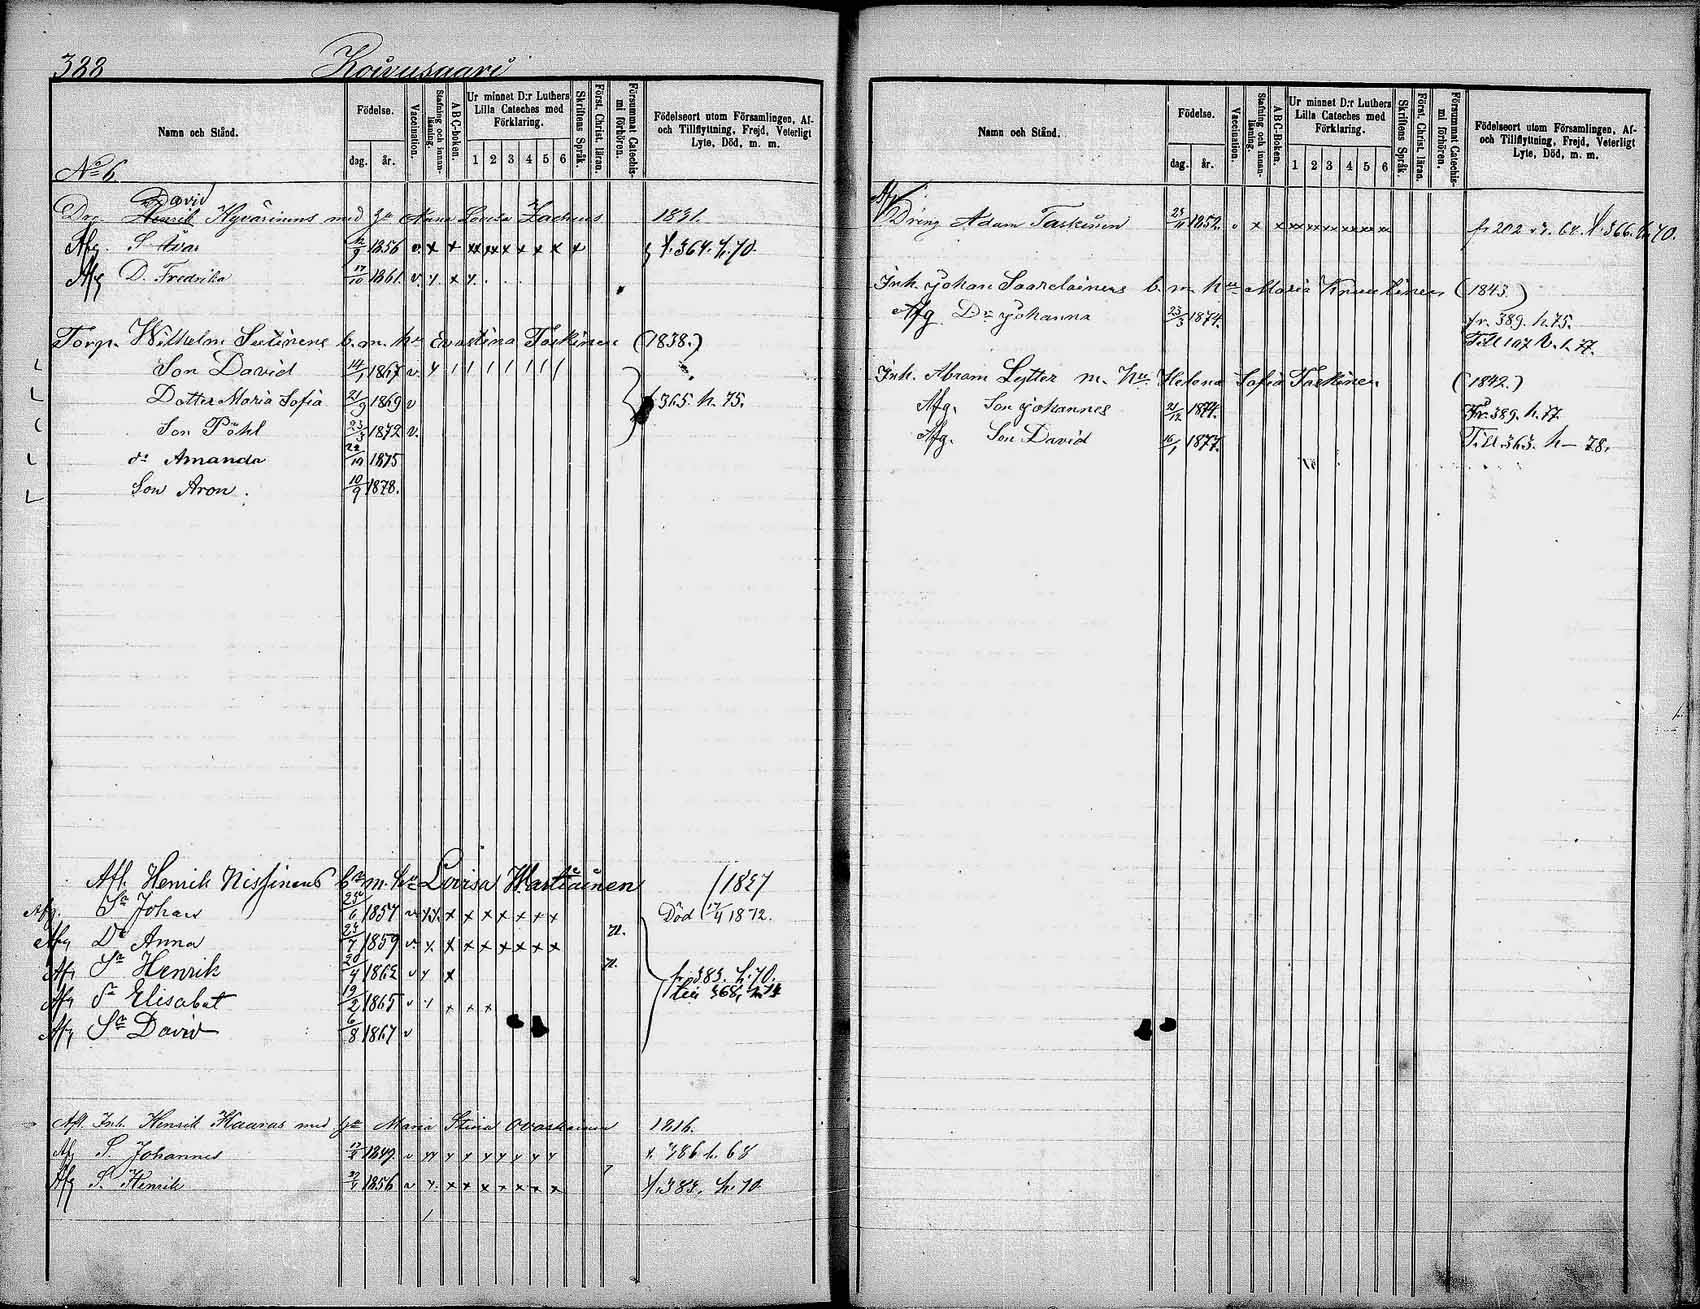 388 Koivusaari
Namn och Stånd. Födelse. dag. år. Vaccination. Stafning och innanläsning. ABC-boken. Ur minnet D:r Luthers Lilla Cateches med Förklaring. 1 2 3 4 5 6 Skriftens Språk. Först. Christ. läran. Försummat Catechismi förhören. Födelseort utom Församlingen, Af- och Tillflyttning, Frejd, Veterligt Lyte, Död, m. m.
No 6
David
Henrik Hyvärinens med Anna Lovisa Zacheus 1831.
Afg. S. Ivar 9 1856 v. x x x x x x x x x f. 364. h. 70.
Afg D. Fredrika 17/10 1861. v. y. x y.
Torp. Wilhelm Sutinens b. m. hu Evastina Taskinen (1838.)
Son David 14/1 1867 v. y / / / / / / /
Dotter Maria Sofia 21/9 1869 v 365. h. 75.
Son Påhl 23/3 1872 v.
dr Amanda 22/10 1875
Son Aron. 10/9 1878.
Afl. Henrik Nissinens b. m. hu Lovisa Wartiainen 1827
Afg. Sn Johan 25/6 1857 v. x x x x x x x Död 17/4 1872.
Afg Dr Anna 24/7 1859 v. x. x x x x x x x n.
Afg Sn Henrik 20/4 1862 v y x n. fr. 383. h. 70.
Afg Dr Elisabet 19/2 1865 v y x x x till 368, h 74
Afg Sn David 6/8 1867 v
Afl. Inh. Henrik Kaaras med hu Maria Stina Ovaskainen 1816.
Afg S. Johannes 1849. v y y y y y y y 386 h. 68
Afg S. Henrik 1856 v y. x x x x x x x f. 383. h. 70.
Namn och Stånd. Födelse. dag. år. Vaccination. Stafning och innanläsning. ABC-Boken. Ur minnet D:r Luthers Lilla Cateches med Förklaring. 1 2 3 4 5 6 Skriftens Språk. Först. Christ. läran. Försummat Catechismi förhören. Födelseort utom Församlingen, Af- och Tillflyttning, Frejd, Veterligt Lyte, Död, m. m.
Afg
Dreng Adam Taskinen 1852. v x x x x x x x x x fr 202 f. 366. h. 70.
Inh. Johan Saarelainens b. m. hu Maria Knuutinen (1843.)
Afg Dr Johanna 23/3 1874. fr. 389. h. 75.
Till 107 h. 1. 77.
Inh. Abram Lytter m. hu Helena Sofia Taskinen (1842.)
Afg. Son Johannes 21/12 1874. Fr. 389. h. 77
Afg. Son David 16/1 1877. Till 363. h - 78.